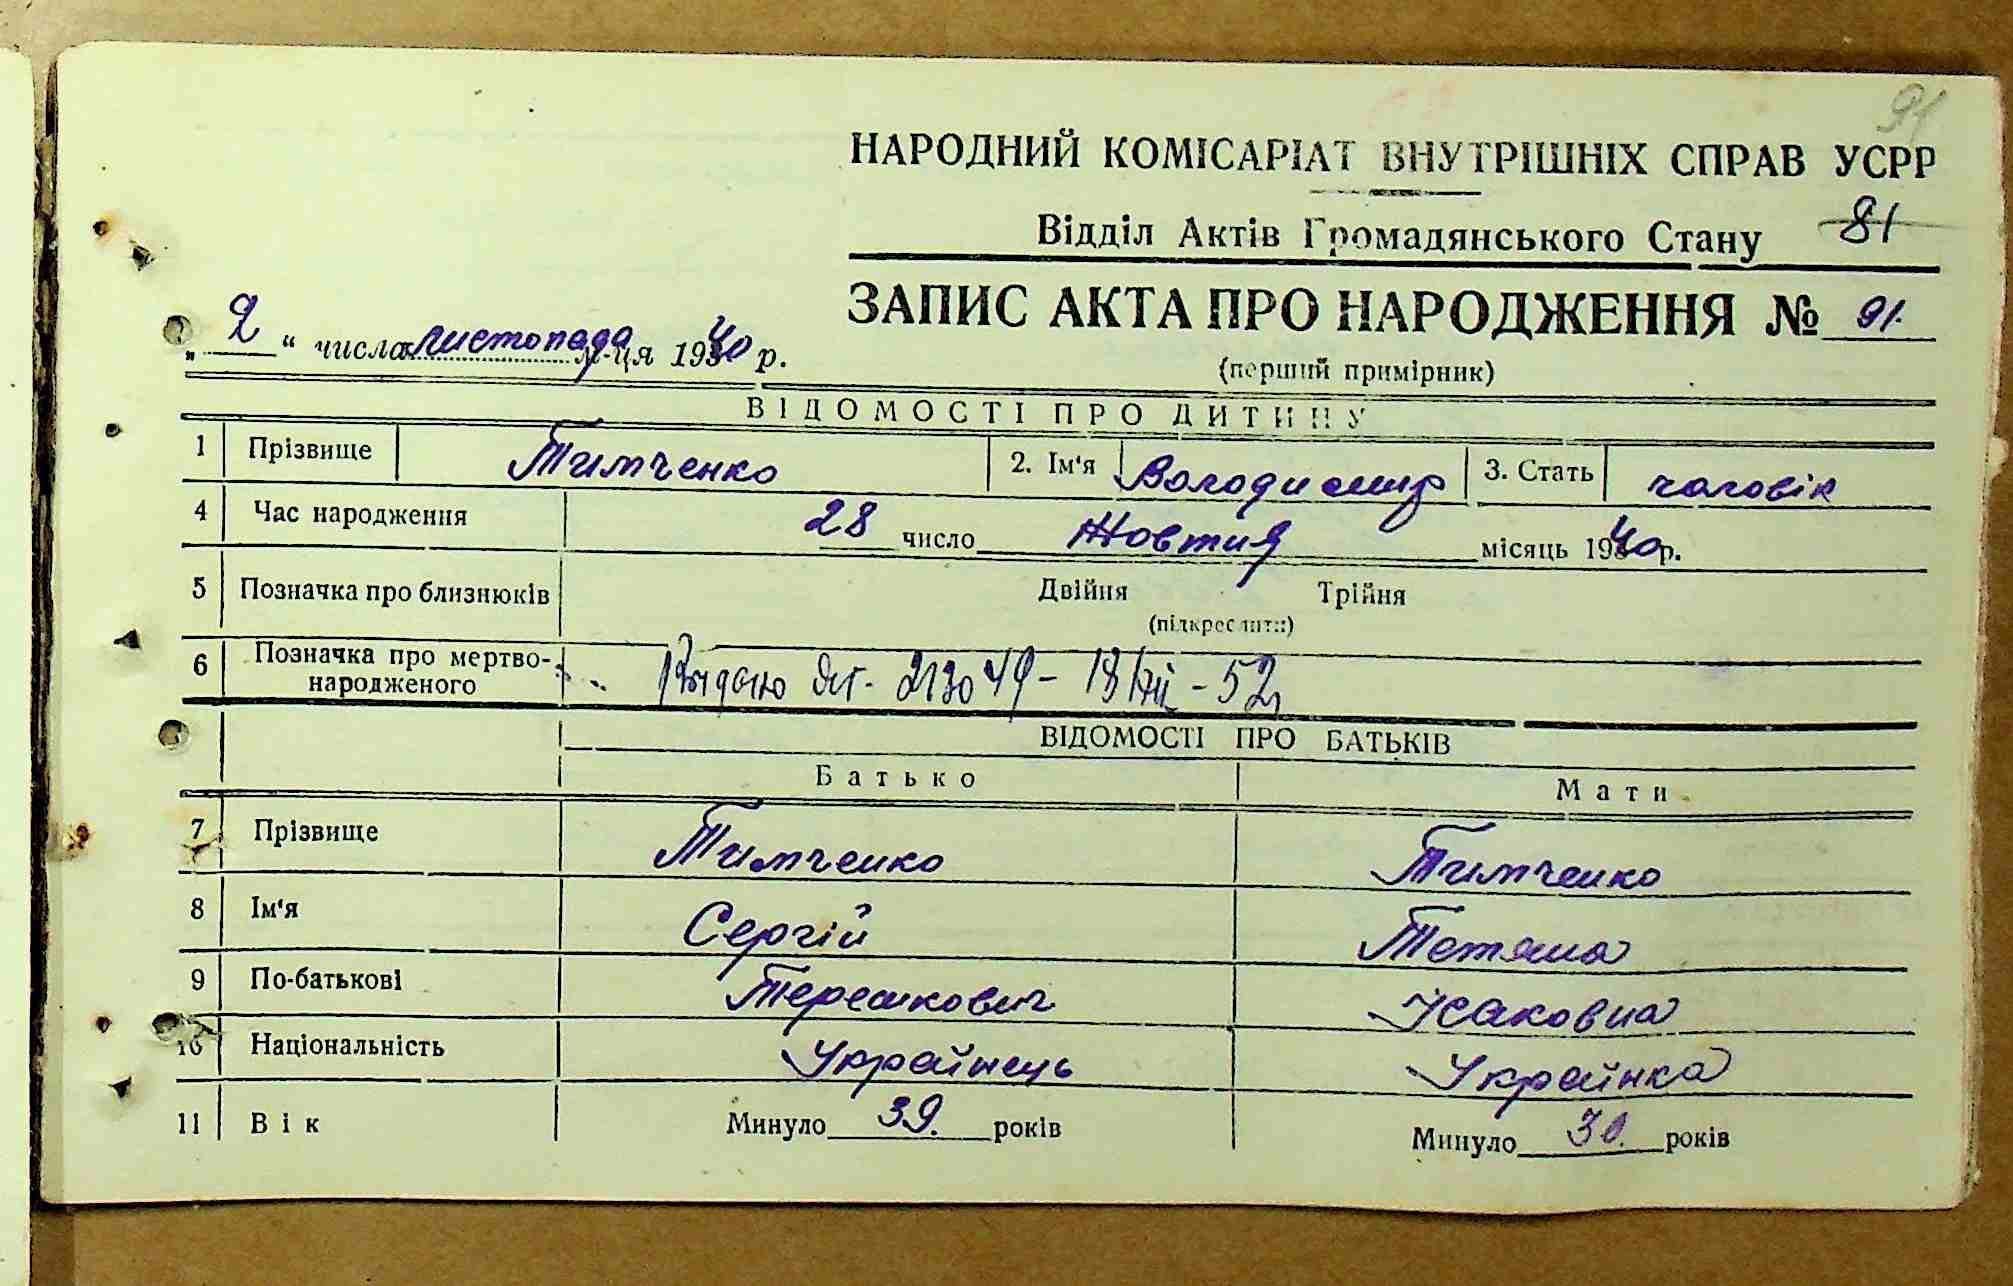 91
НАРОДНИЙ КОМІСАРІАТ ВНУТРІШНІХ СПРАВ УСРР
Відділ Актів Громадянського Стану 81
ЗАПИС АКТА ПРО НАРОДЖЕННЯ № 91.
„ 2 “ числа листопада м-ця 1940 р.
(перший примірник)
ВІДОМОСТІ ПРО ДИТИНУ
1 Прізвище Тимченко 2. Ім'я Володимир 3. Стать чоловік
4 Час народження 28 число Жовтня місяць 1940 р.
5 Позначка про близнюків Двійня Трійня
(підкреслити)
6 Позначка про мертво-
народженого 213049 - 18/VII - 52
ВІДОМОСТІ ПРО БАТЬКІВ
Батько Мати
7 Прізвище Тимченко Тимченко
8 Ім'я Сергій Тетяна
9 По-батькові Ісаковна
10 Національність Украйнець Украйнка
11 Вік Минуло 39. років Минуло 30. років